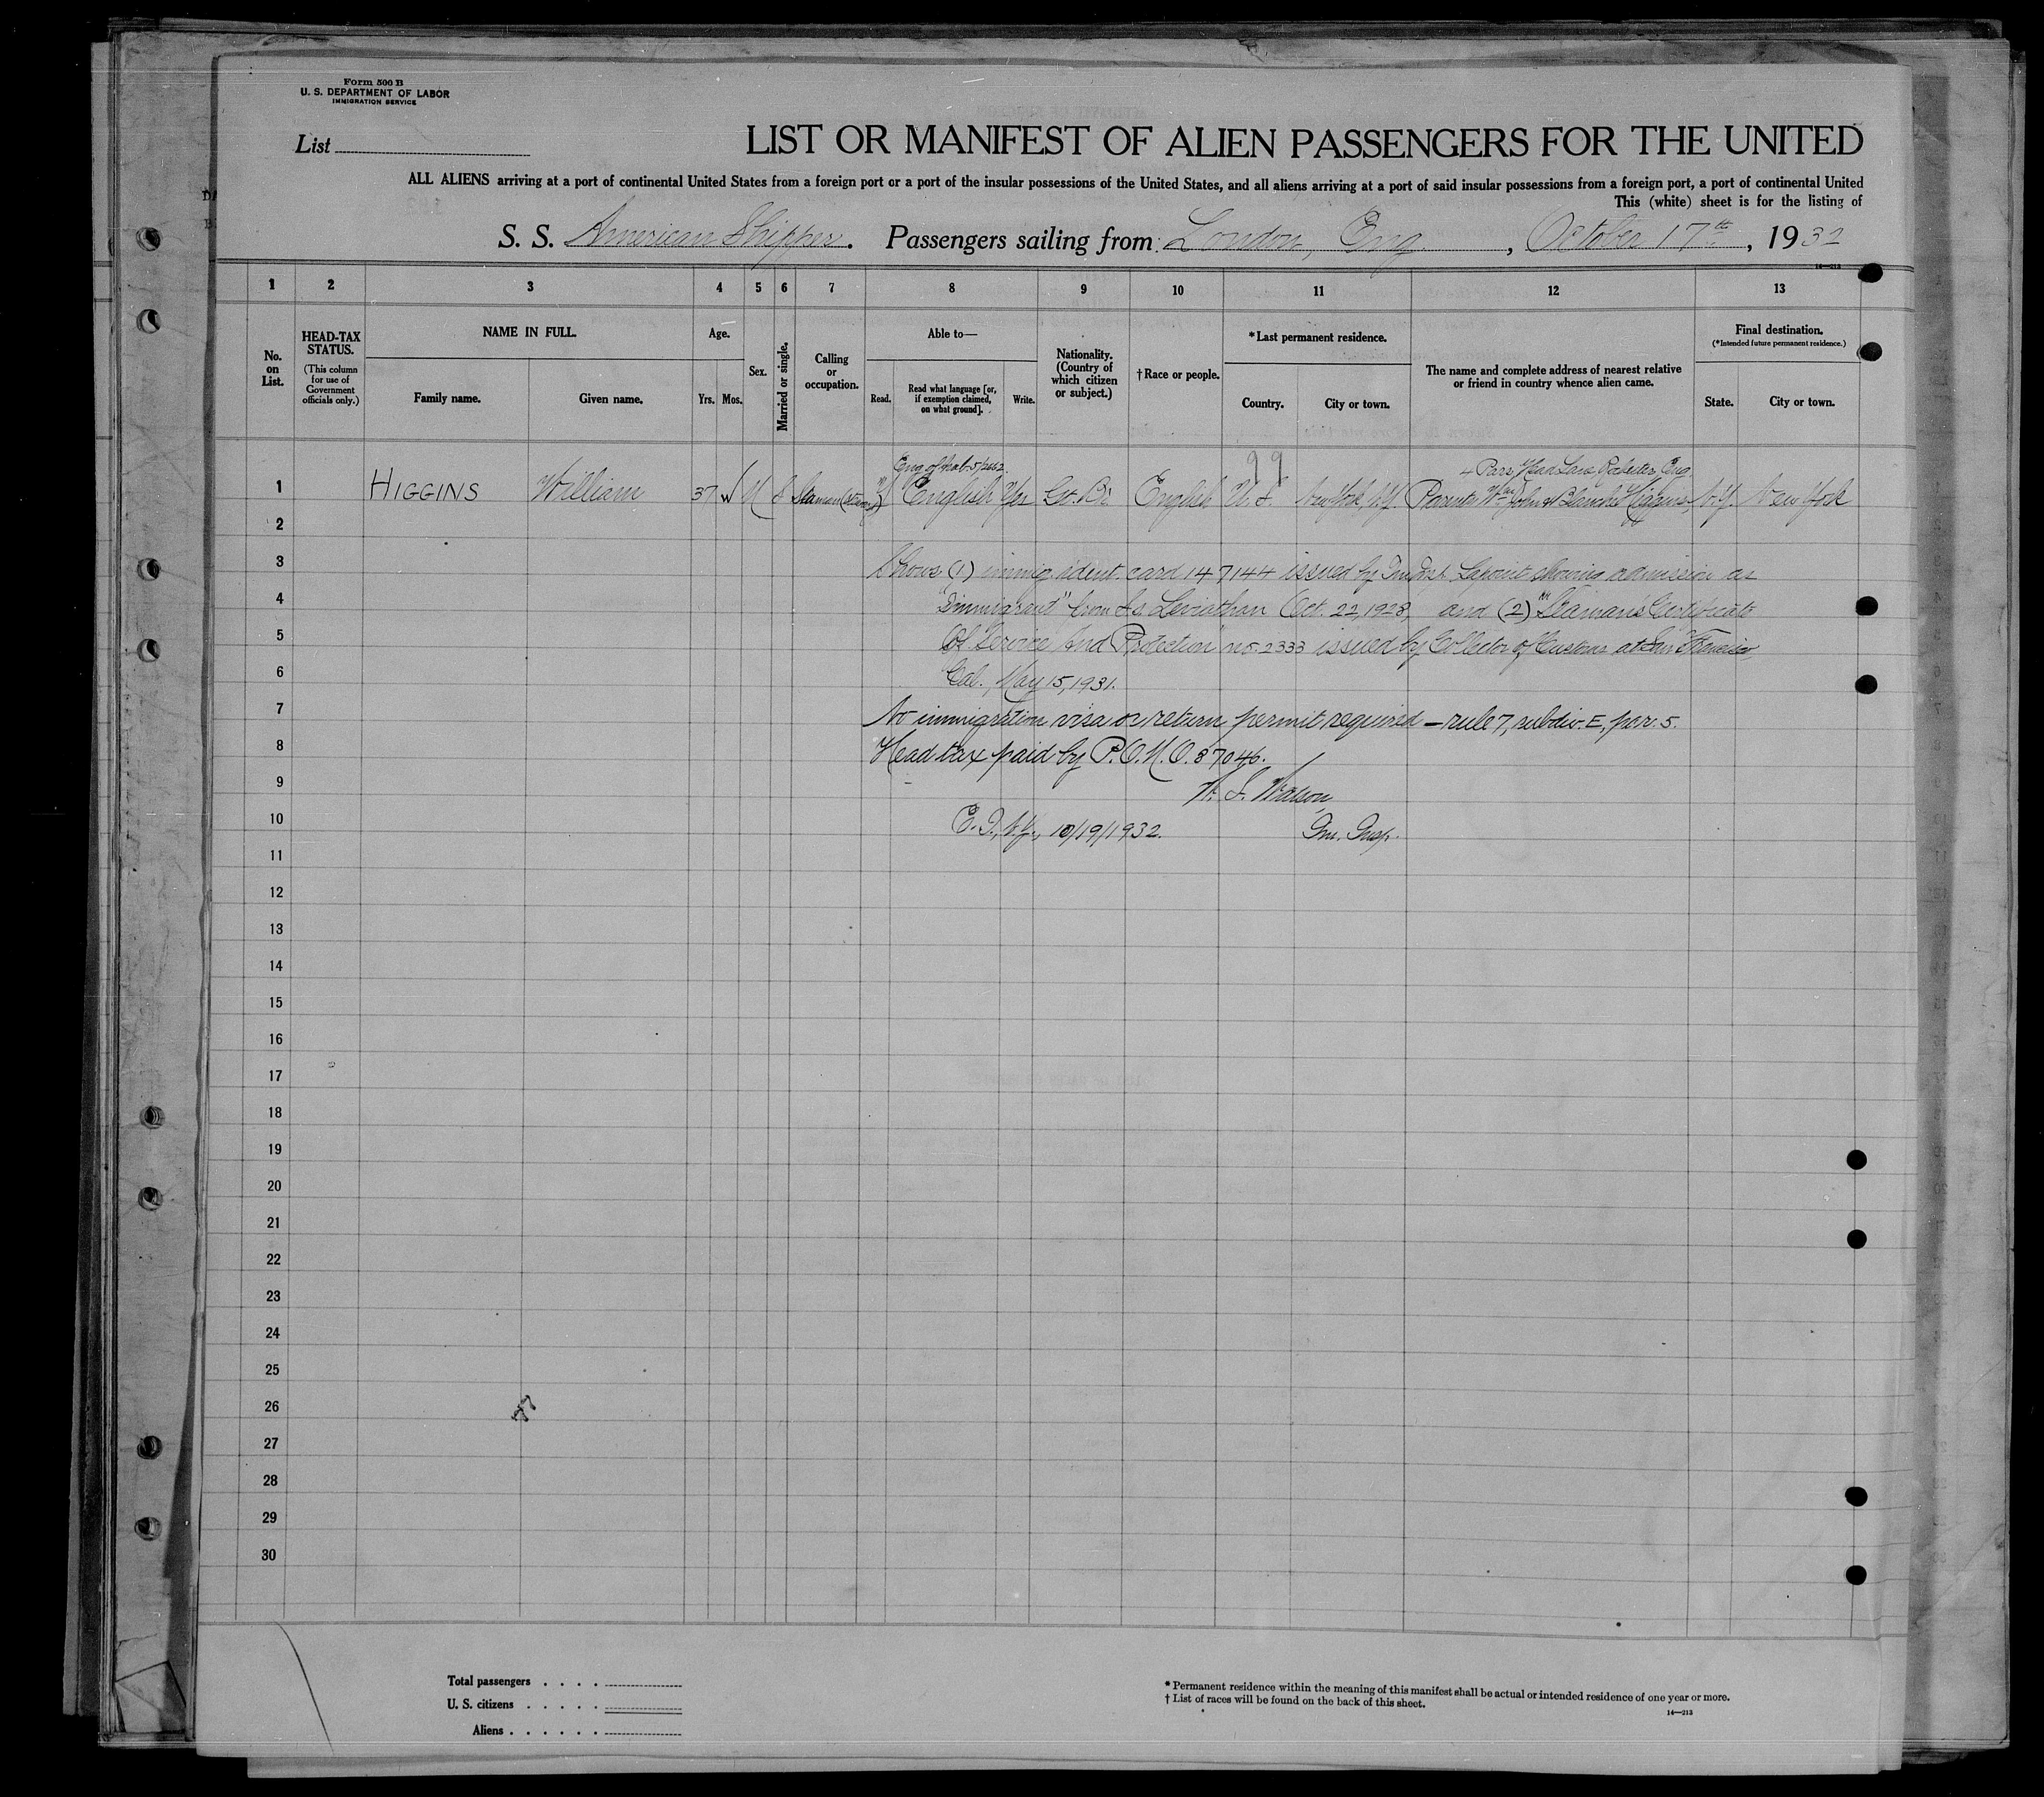 Form 500 B
U. S. DEPARTMENT OF LABOR
IMMIGRATION SERVICE
List
LIST OR MANIFEST OF ALIEN PASSENGERS FOR THE UNITED
ALL ALIENS arriving at a port of continental United States from a foreign port or a port of the insular possessions of the United States, and all aliens arriving at a port of said insular possessions from a foreign port, a port of continental United
This (white) sheet is for the listing of
S. S. American Shipper. Passengers sailing from London, Eng., October 17th, 1932
14—213
1 2 3 4 5 6 7 8 9 10 11 12 13
No. on List.
HEAD-TAX STATUS.
(This column for use of Government officials only.)
NAME IN FULL.
Family name.
Given name.
Age.
Yrs. Mos.
Sex.
Married or single.
Calling or occupation.
Able to—
Read.
Read what language [or, if exemption claimed, on what ground].
Write.
Nationality. (Country of which citizen or subject.)
† Race or people.
*Last permanent residence.
Country.
City or town.
The name and complete address of nearest relative or friend in country whence alien came.
Final destination.
(*Intended future permanent residence.)
State.
City or town.
99
Lane, Eng
1 HIGGINS William 37 M S Seaman English Yes Gt. Br. English U.S. New York, N.Y. Parents Wm John & Blanche Higgins, N.Y. New York
2
3 Shows (1) immig. ident. card 147144 issued by Im. Insp. Lapoint showing admission as
4 "Immigrant" from S.S. Leviathan Oct. 22, 1928, and (2) "Seaman's Certificate
5 Of Service And Protection" no. 2333 issued by Collector of Customs at San Francisco,
6 Cal., May 15, 1931.
7 No immigration visa or return permit required — rule 7, subdiv. E, par. 5.
8 Head tax paid by P.O.M.O. 87046.
9 W. J. Watson
10 E.I., N.Y., 10/19/1932. Im. Insp.
11
12
13
14
15
16
17
18
19
20
21
22
23
24
25
26
27
28
29
30
Total passengers . . . .
U. S. citizens . . . . .
Aliens . . . . . .
* Permanent residence within the meaning of this manifest shall be actual or intended residence of one year or more.
† List of races will be found on the back of this sheet.
14—213